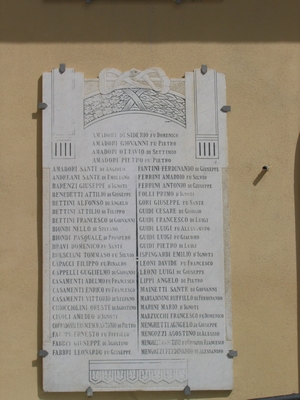 AMADORI DESIDERIO FU DOMENICO
AMADORI GIOVANNI FU PIETRO
AMADORI OTTAVIO DI SETTIMIO
AMADORI PIETRO FU PIETRO
AMADORI SANTE DI ANGIOLO
ANDREANI SANTE DI EMILIANO
BADENZI GIUSEPPE D'IGNOTI
BENEDETTI ATTILIO DI GIUSEPPE
BETTINI ALFONSO DI ANGELO
BETTINI ATTILIO DI FILIPPO
BETTINI FRANCESCO DI GIOVANNI
BIONDI NELLO DI
BIONDI PASQUALE DI PROSPERO
BRAVI DOMENICO DI SANTE
TOMMASO DI
CAPACCI FILIPPO FU
CAPPELLI GUGLIELMO DI GIOVANNI
CASAMENTI ADELMO FU FRANCESCO
CASAMENTI ENRICO DI FRANCESCO
CASAMENTI VITTORIO DI
ORESTE DI
AMEDEO D'IGNOTI
DI PIETRO
FABBRI
FABBRI GIUSEPPE DI
FABBRI LEONARDO FU GIUSEPPE
FANTINI FERDINANDO DI GIUSEPPE
FERRINI AMADIO FU SILVIO
FERRINI ANTONIO DI GIUSEPPE
PRIMO D'IGNOTI
GORI GIUSEPPE FU SANTE
GUIDI CESARE DI GIOSUE
GUIDI FRANCESCO DI LUIGI
GUIDI LUIGI FU
GUIDI LUIGI FU GIACOMO
GUIDI PIETRO DI LUIGI
EMILIO D'IGNOTI
LEONI DAVIDE FU FRANCESCO
LEONI LUIGI DI GIUSEPPE
LIPPI ANGELO DI PIETRO
MAINETTI SANTE DI GIOVANNI
MARIANINI RUFFILLO DI FERDINANDO
MARINI MARIO D'IGNOTI
MARZOCCHI FRANCESCO FU DOMENICO
MENGHETTI ANGELO DI GIUSEPPE
MENGOZZI AGOSTINO DI ALESSIO
MENGOZZI FU GIOVANNI
MENGOZZI DI ALESSANDRO